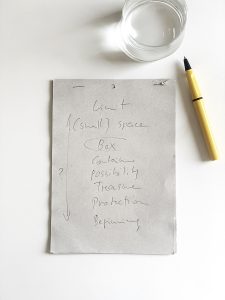 Limit
(small) space
Box
Container
possibility
Treasure
Protection
Beginning
?